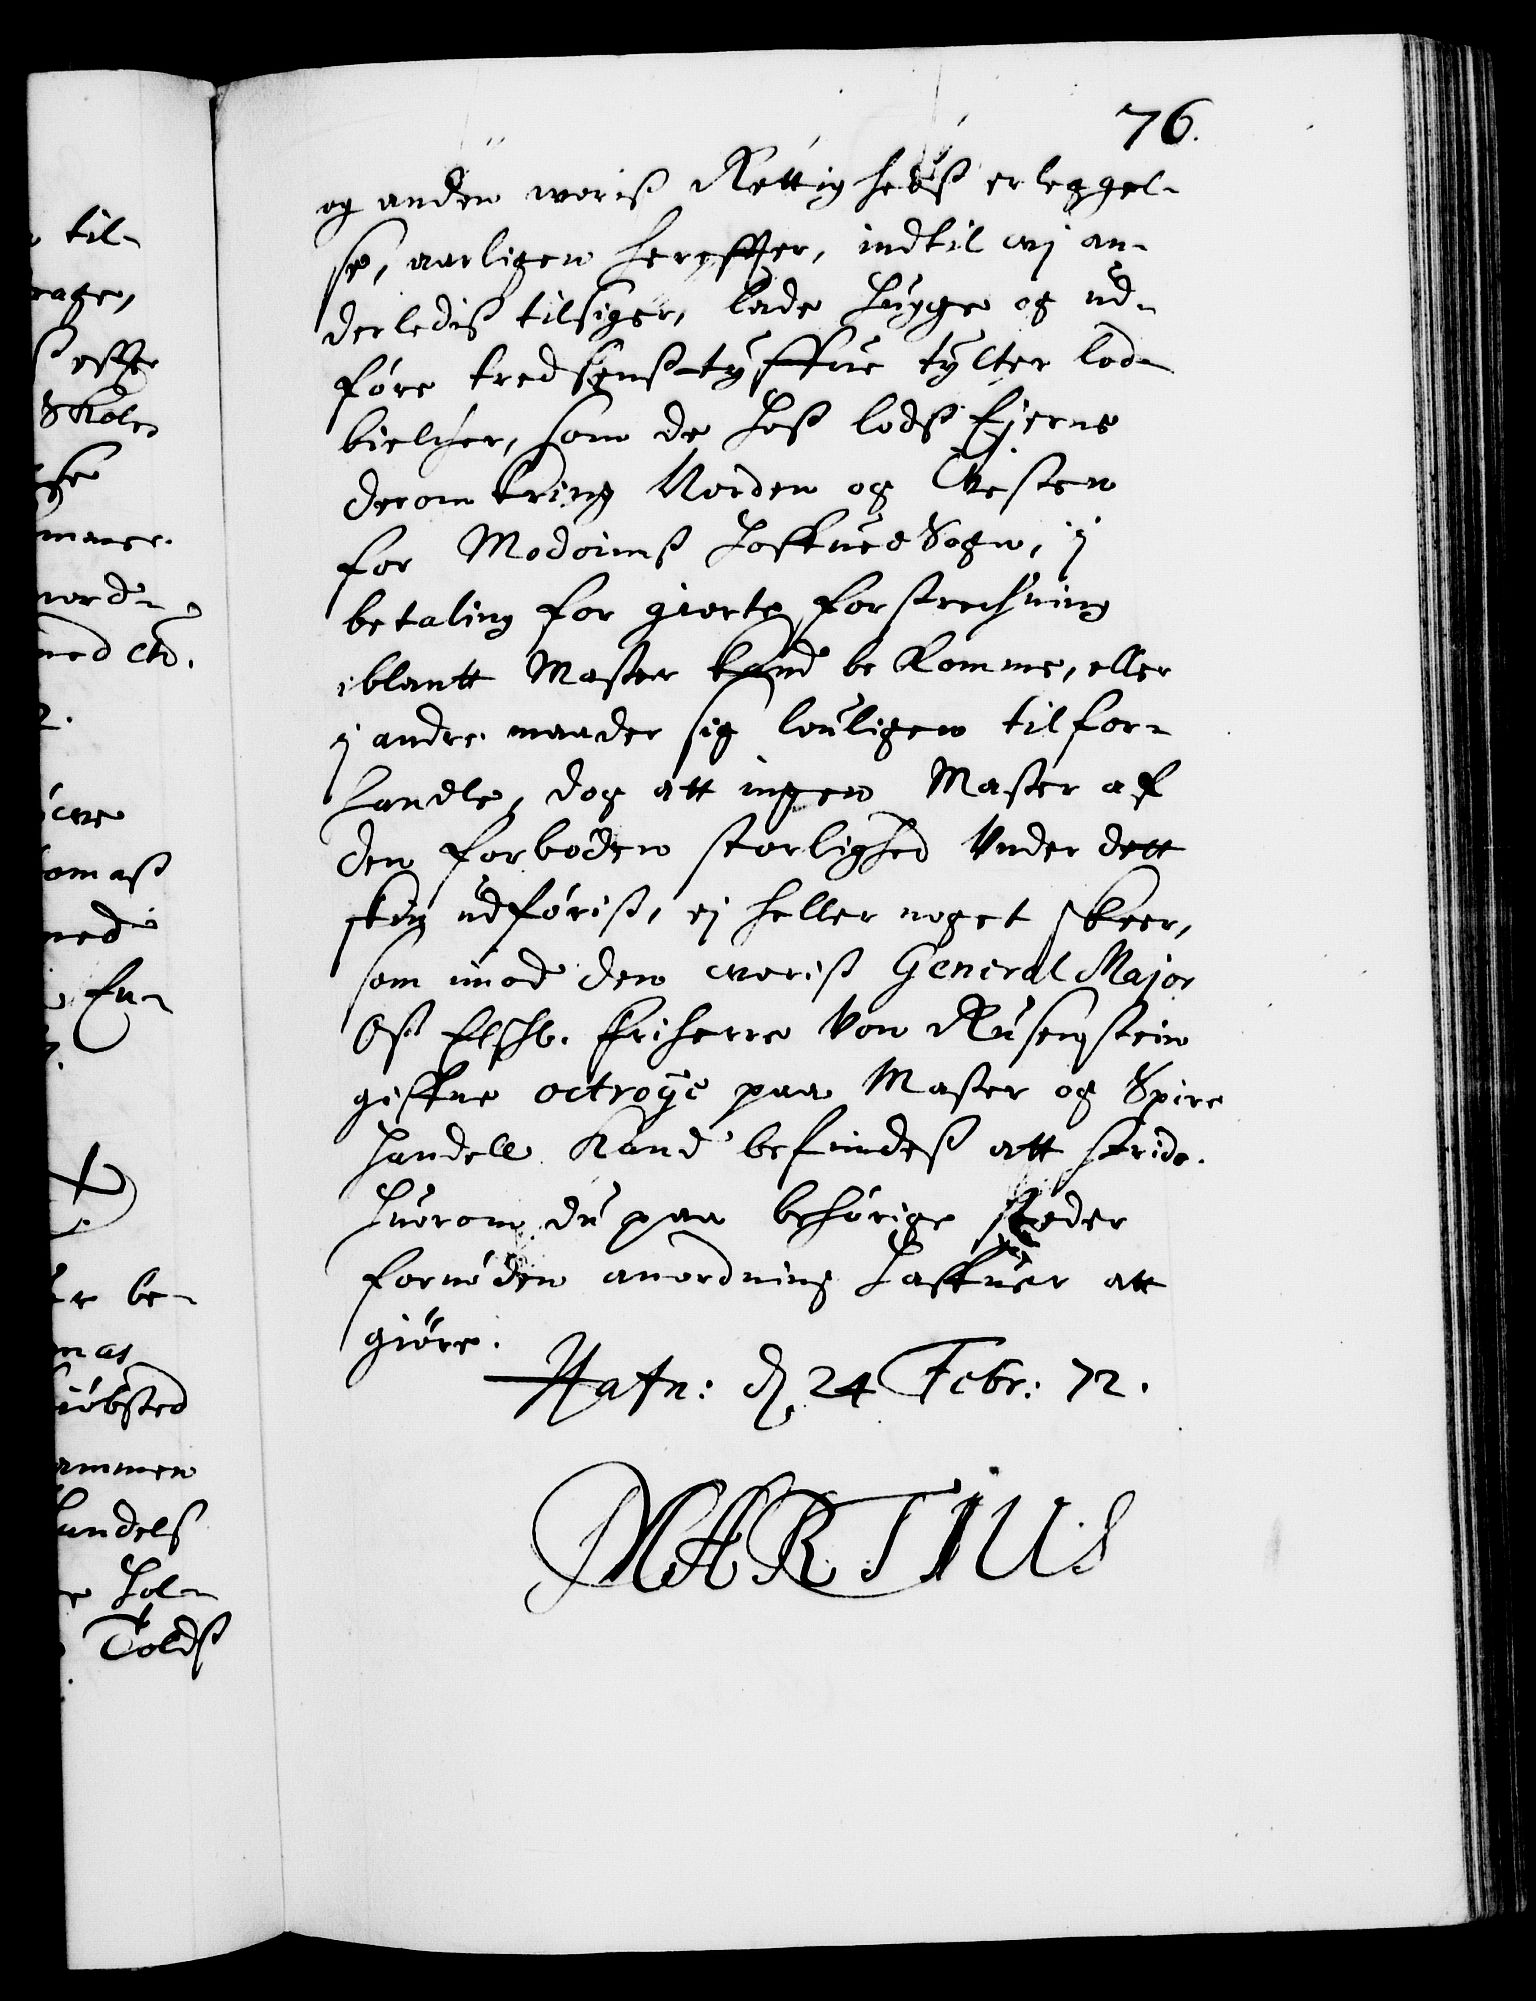 76.
og anden woris Rettigheds erleggel-
se, aarligen hereffter, indtil wj an-
derledis tilsiger, lade hugge og ud-
føre tredsenstyffue tylter lod-
bielcher, som de hos lods Ejerne
deromkring Norden og Vesten
for Modoims Hoffued Sogn, i
betaling for giorte forstrechning
iblantt Master kand bekomme, eller
i andre maader sig louligen tilfor-
handle, dog att ingen Master af
den forboden storlighed Under dett
skin udføris, ej heller noget skeer,
som imod den woris General Major
Oss Elskl. Friherre Von Rusenstein
giffne octroye paa Master og Spire
handell kand befindes att stride.
Huorom du paa behørige steder
fornøden anordning haffuer att
giøre.
Hafn: d. 24 Febr: 72.
MARTIUS
til-
rage,
effter
Skole
mance.
nord-
ned etc.
omas
ned
En-
er be-
mas
kiøbsted
ammen
handels
hol-
Tolds